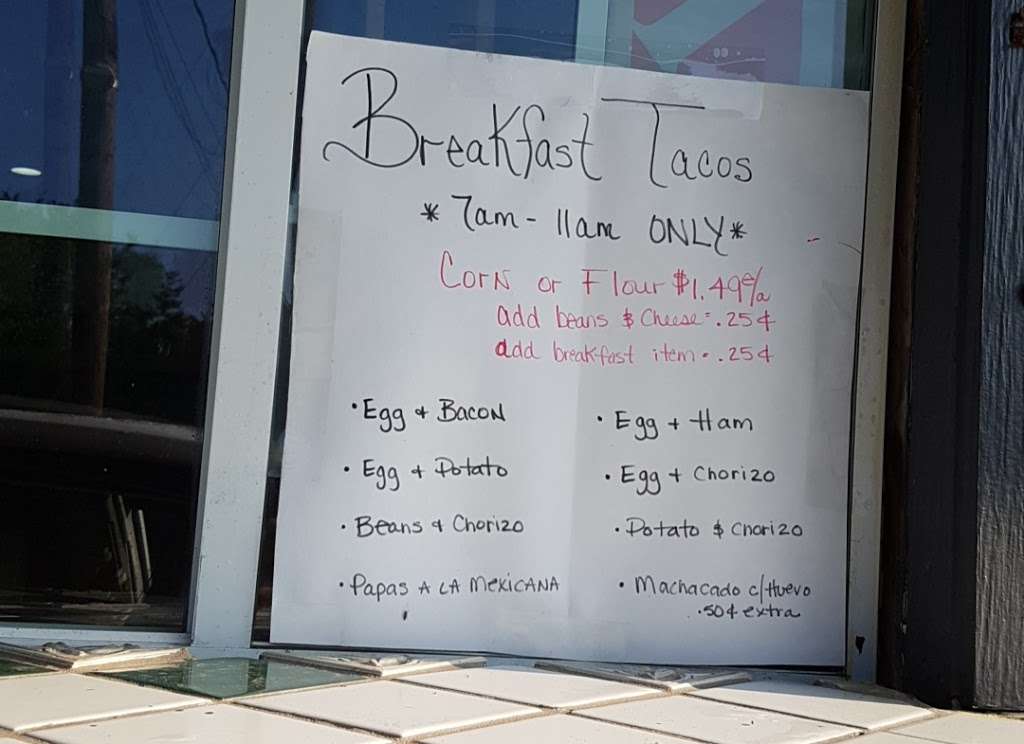 Breakfast Tacos
* 7am - 11am ONLY *
Corn or Flour $1.49 e/a
add beans $ Cheese = .25¢
add breakfast item - .25¢
• Egg + Bacon
• Egg + Potato
• Beans + Chorizo
• Papas A LA MexicANA
• Egg + Ham
• Egg + Chorizo
• Potato $ Chorizo
• Machacado c/Huevo
.50¢ extra